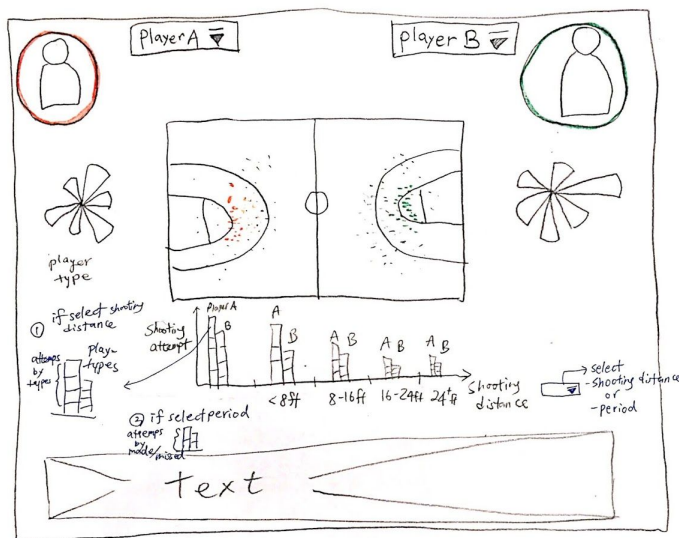 Player A
player B
player
type
① if select shooting
distance
attemps
by
types
Play-
types
Shooting
attempt
Player A
B
A
B
A
B
A
B
A
B
<8ft
8-16ft
16-24ft
24+ft
Shooting
distance
select
-Shooting distance
or
-period
② if select period
attemps
by
made/missed
text